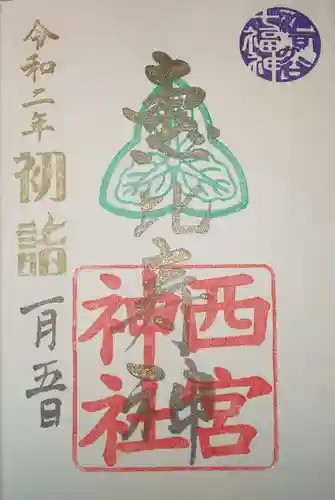 七福神
恵比寿神
西宮
神社
令和二年
初詣
一月五日